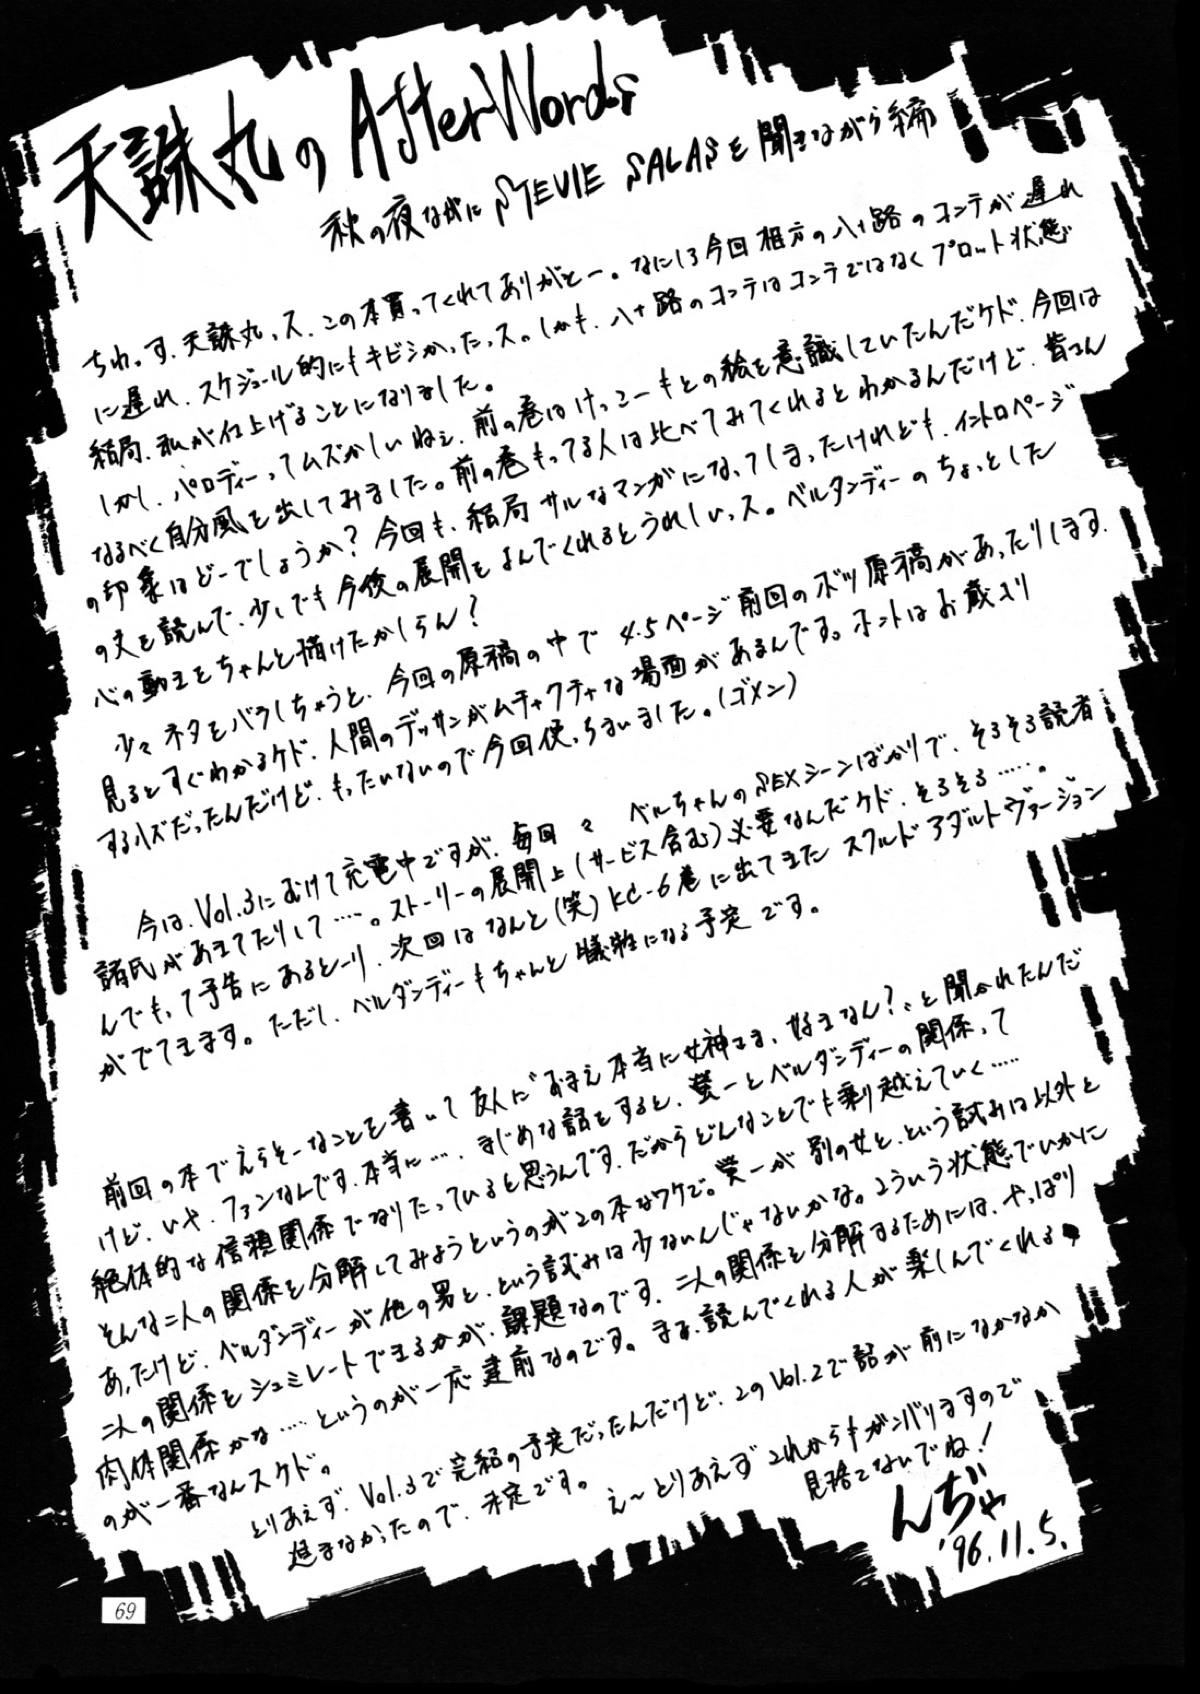 天誅丸の AfterWords
秋の夜ながに STEVIE SALASを聞きながら編
ちわっす、天誅丸っス、この本買ってくれてありがとー。なにしろ今回相方の八十路のコンテが遅れ
に遅れ、スケジュール的にもキビシかったっス。しかも、八十路のコンテはコンテではなくプロット状態
結局、私が仕上げることになりました。
しかし、パロディーってムズかしいねェ、前の巻はけっこーもとの絵を意識していたんだケド、今回は
なるべく自分風を出してみました。前の巻もってる人は比べてみてくれるとわかるんだけど、皆さん
の印象はどーでしょうか? 今回も、結局サルなマンガになってしまったけれども、イントロページ
の文を読んで、少しでも今後の展開をよんでくれるとうれしいっス。ベルダンディーのちょっとした
心の動きをちゃんと描けたかしらん?
少々ネタをバラしちゃうと、今回の原稿の中で 4.5ページ前回のボツ原稿があったりします.
見るとすぐわかるケド、人間のデッサンがムチャクチャな場面があるんです。ホントはお蔵入り
するハズだったんだけど、もったいないので今回使っちまいました。(ゴメン)
今は、Vol.3にむけて充電中ですが、毎回々 ベルちゃんのSEXシーンばかりで、そろそろ読者
諸氏があきてたりして……。ストーリーの展開上(サービス含む)必要なんだケド、そろそろ……。
んでもって予告にあるとーり、次回はなんと(笑)KC-6巻に出てきた スクルド アダルトヴァージョン
がでてきます。ただし、ベルダンディーもちゃんと犠牲になる予定です。
前回の本でえらそーなことを書いて友人に"おまえ本当に女神さま、好きなん?"と聞かれたんだ
けど、いや、ファンなんです、本当に…、まじめな話をすると、螢一とベルダンディーの関係って
絶体的な信頼関係でなりたっていると思うんです、だからどんなことでも乗り越えていく……
そんな二人の関係を分解してみようというのがこの本なワケで。螢一が別の女と、という試みは以外と
あったけど、ベルダンディーが他の男と、という試みは少ないんじゃないかな。こういう状態でいかに
二人の関係をシュミレートできるかが、課題なのです、二人の関係を分解するためには、やっぱり
肉体関係かな……というのが一応建前なのです。まあ、読んでくれる人が楽しんでくれる
のが一番なんスケド。
とりあえず、Vol.3で完結の予定だったんだけど、このVol.2で話が前になかなか
進まなかったので、未定です。
え〜とりあえずこれからもガンバリますので
見捨てないでね!
んぢゃ
'96.11.5.
69